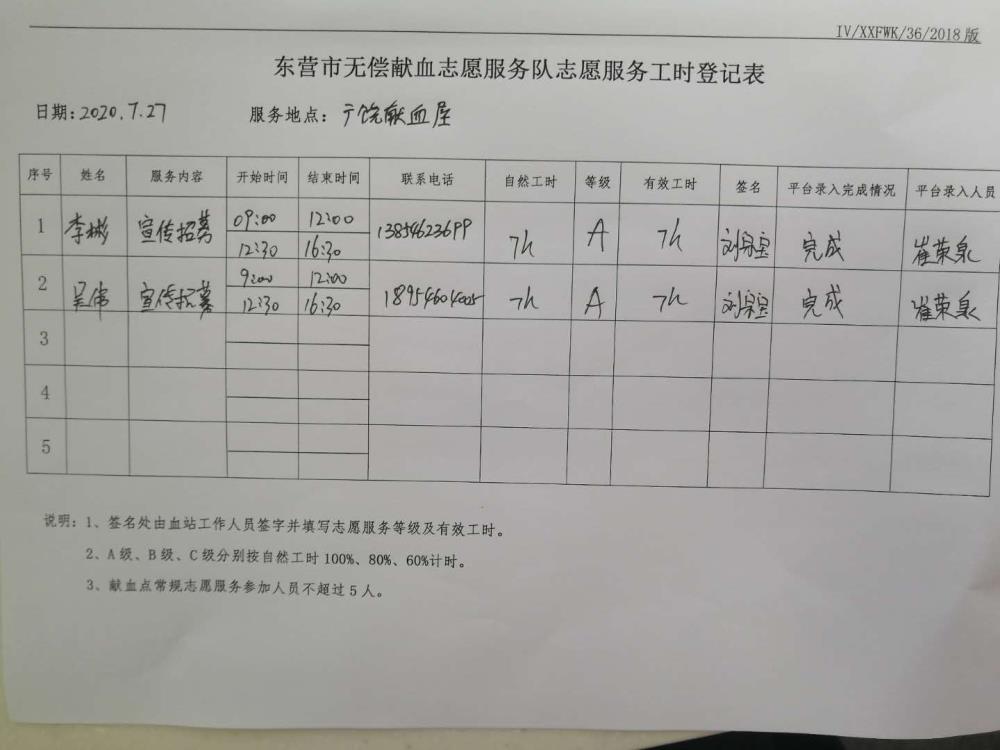 IV/XXFWK/36/2018版
东营市无偿献血志愿服务队志愿服务工时登记表
日期:2020.7.27 服务地点:广饶献血屋
序号 姓名 服务内容 开始时间 结束时间 联系电话 自然工时 等级 有效工时 签名 平台录入完成情况 平台录入人员
1 李彬 宣传招募 09:00 12:00 13854623699 7h A 7h 完成 崔荣泉
12:30 16:30
2 吴伟 宣传招募 9:00 12:00 18954604005 7h A 7h 完成 崔荣泉
12:30 16:30
3
4
5
说明:1、签名处由血站工作人员签字并填写志愿服务等级及有效工时。
2、A级、B级、C级分别按自然工时100%、80%、60%计时。
3、献血点常规志愿服务参加人员不超过5人。